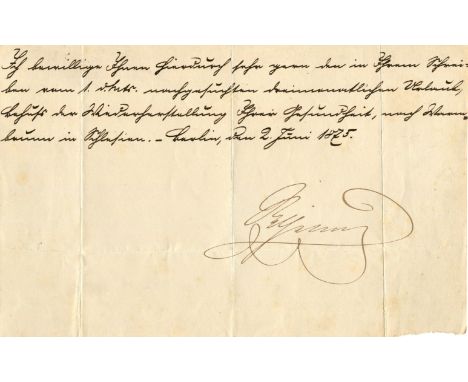 Ich bewillige Ihnen hierdurch sehr gern den in Ihrem Schrei-
ben vom 1. d. Mts. nachgesuchten dreimonatlichen Urlaub,
behufs der Wiederherstellung Ihrer Gesundheit, nach Warm-
brunn in Schlesien. – Berlin, den 2. Juni 1875.
Wilhelm